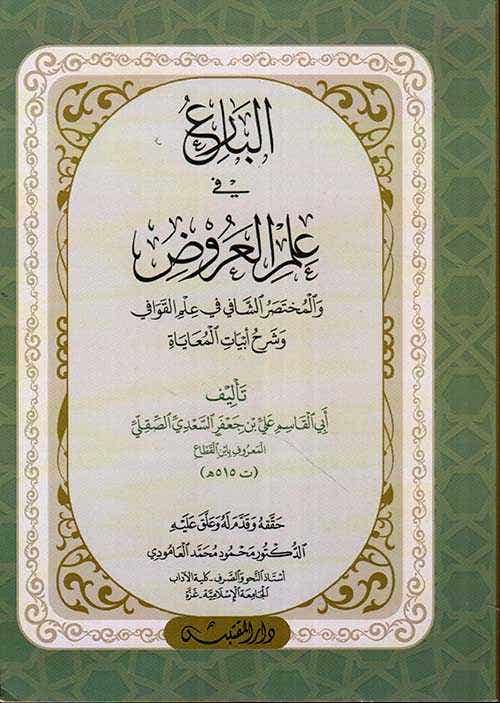 البَارِعُ
في
عِلْمِ العَرُوضِ
وَالْمُخْتَصَرُ الشَّافِي فِي عِلْمِ القَوَافِي
وَشَرْحُ أَبْيَاتِ الْمُعَايَاةِ
تَأْلِيفُ
أَبِي الْقَاسِمِ عَلِيِّ بْنِ جَعْفَرٍ السَّعْدِيِّ الصِّقِلِّيِّ
المَعْرُوفِ بِابْنِ القَطَّاعِ
(ت ٥١٥ هـ)
حَقَّقَهُ وَقَدَّمَ لَهُ وَعَلَّقَ عَلَيْهِ
الدُّكْتُور مَحْمُود مُحَمَّد العَامُودِي
أُسْتَاذ النَّحْوِ وَالصَّرْفِ - كُلِّيَة الآدَاب
الجَامِعَة الإِسْلَامِيَّة - غَزَّة
دار المقتبس